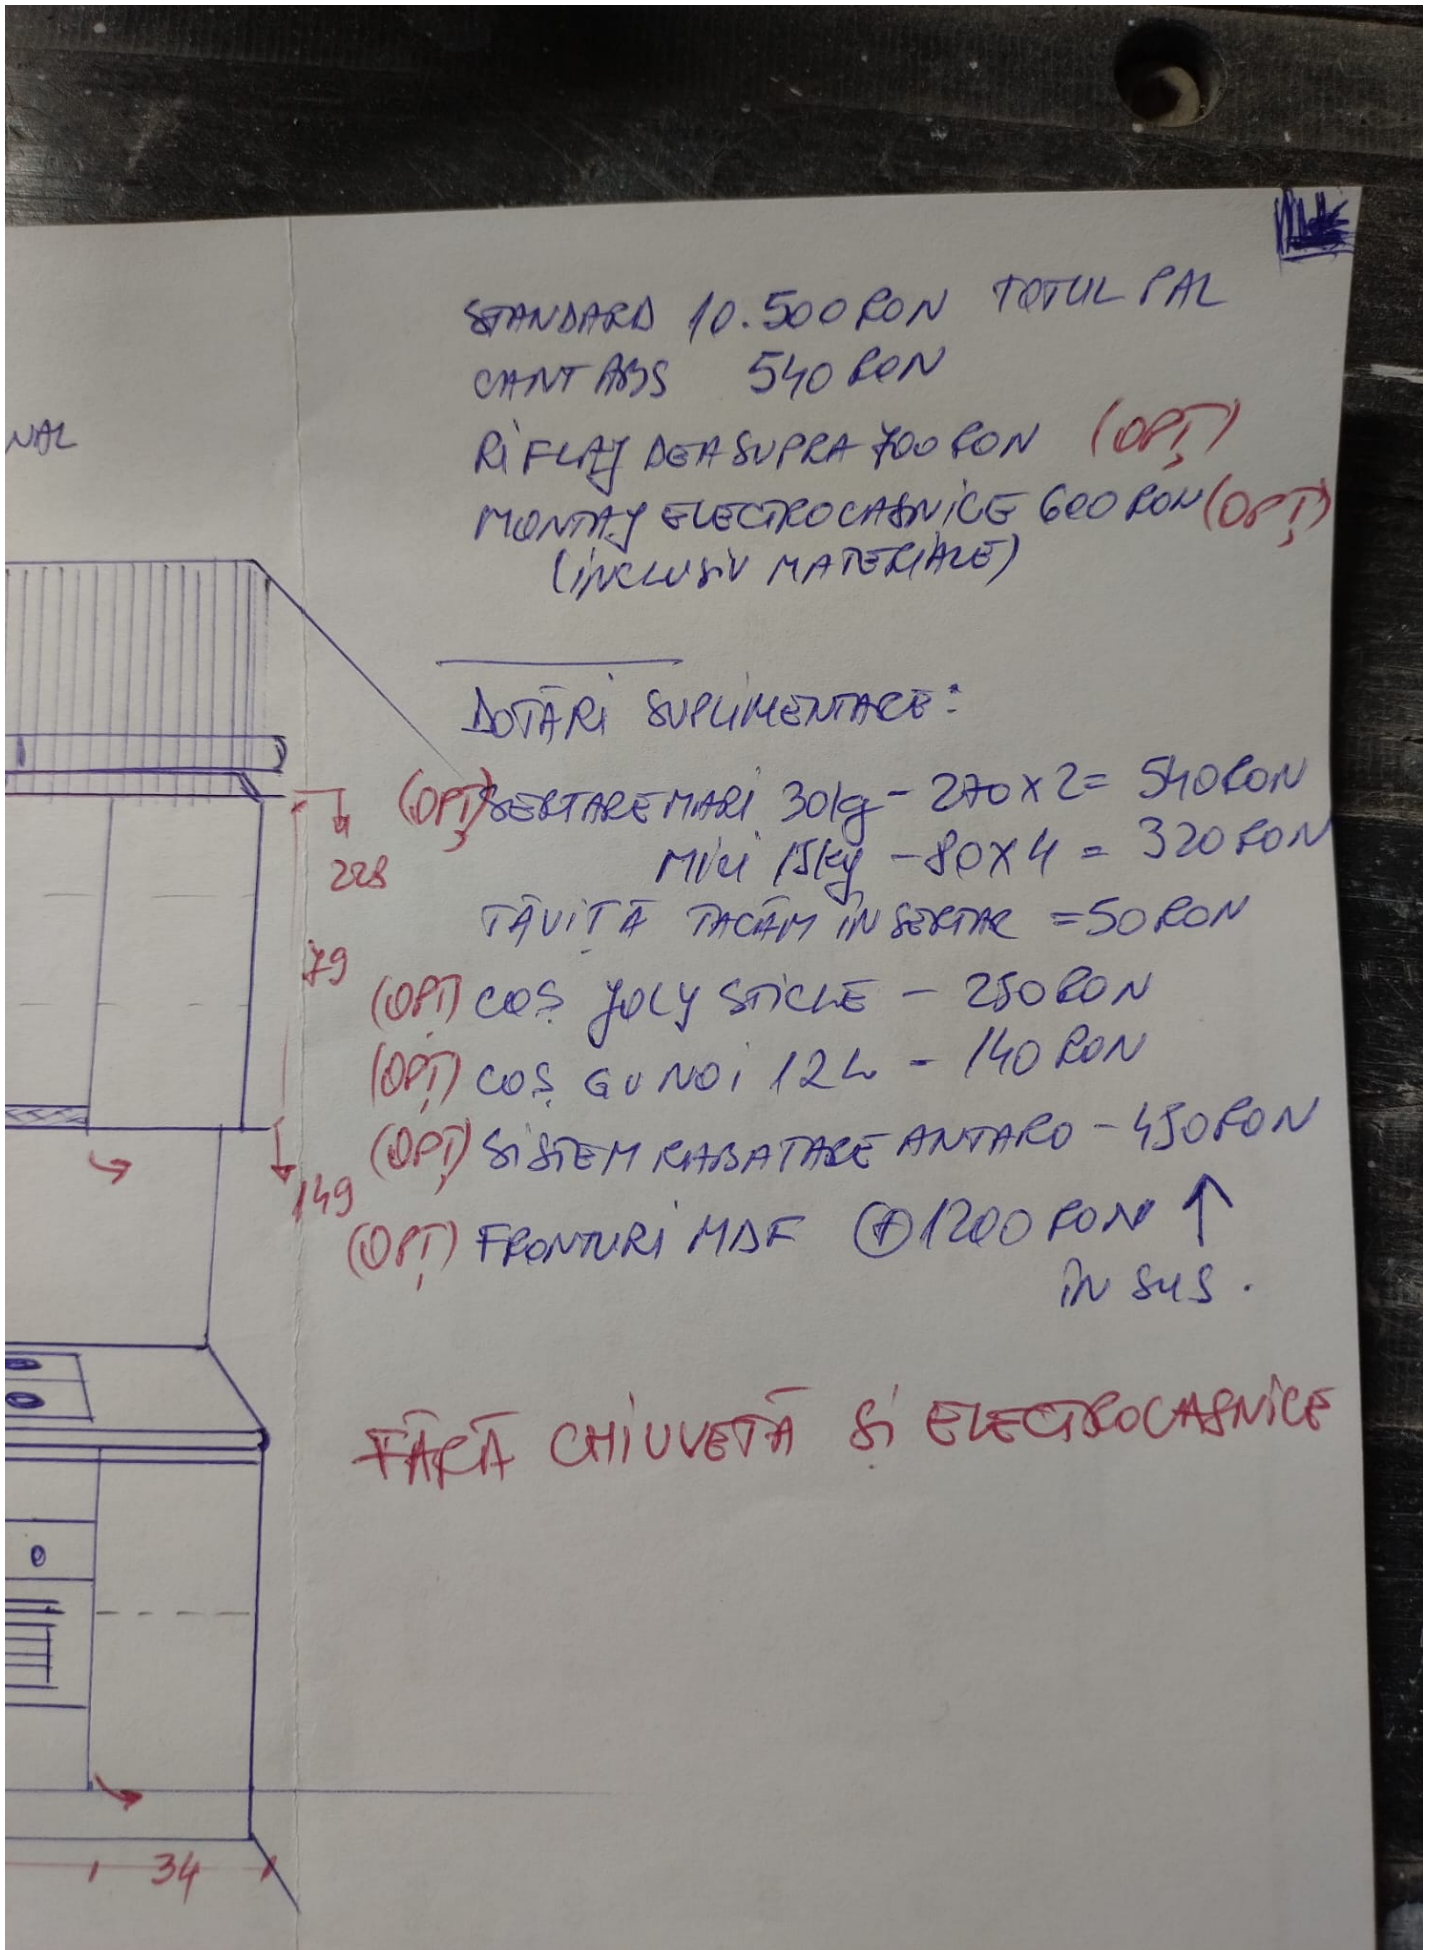 STANDARD 10.500 RON TOTUL PAL
CANT ABS 540 RON
NAL
RIFLAJ DEASUPRA 700 RON (OPȚ)
MONTAJ ELECTROCASNICE 600 RON (OPȚ)
(INCLUSIV MATERIALE)
DOTĂRI SUPLIMENTARE:
(OPȚ) SERTARE MARI 30kg - 270 x 2 = 540 RON
MICI 15kg - 80 x 4 = 320 RON
228
TĂVIȚĂ TACÂM ÎN SERTAR = 50 RON
79
(OPȚ) COȘ JOLY STICLE - 250 RON
(OPȚ) COȘ GUNOI 12L - 140 RON
(OPȚ) SISTEM RABATARE ANTARO - 450 RON
149
(OPȚ) FRONTURI MDF + 1200 RON ↑
ÎN SUS.
FĂRĂ CHIUVETĂ ȘI ELECTROCASNICE
34